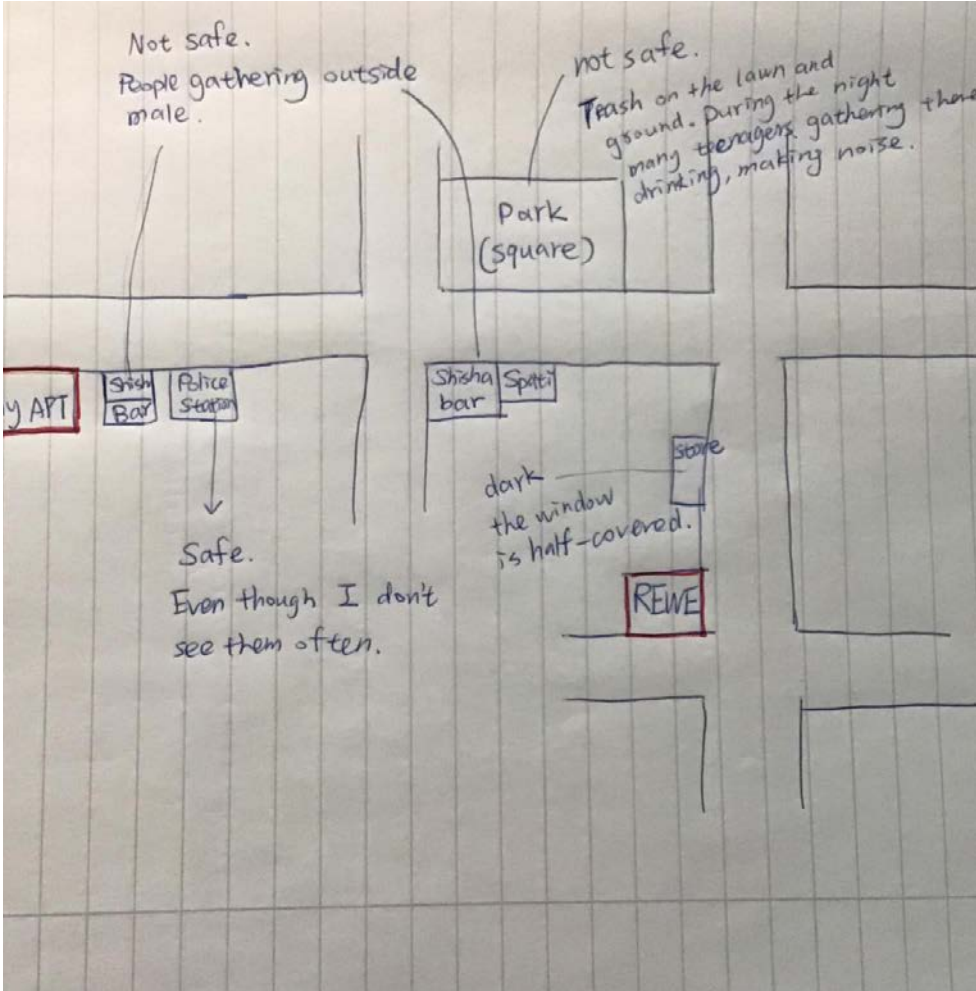 Not safe.
People gathering outside
male.
not safe.
Trash on the lawn and
ground. During the night
many teenagers gathering there
drinking, making noise.
Park
(square)
y APT
Shish
Bar
Police
Station
Shisha
bar
Spati
store
dark
the window
is half-covered.
Safe.
Even though I don't
see them often.
REWE